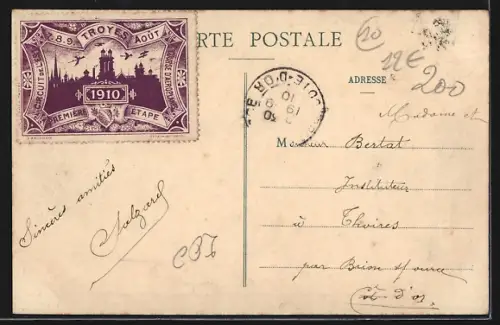 8.9 TROYES Août
CIRCUIT DE L'EST
1910
PREMIÈRE ETAPE
CARTE POSTALE
ADRESSE
10
12€
200
CÔTE-D'OR
Madame et
Monsieur Bertat
Instituteur
à Thoires
par Brion s/ Ource
Côte D'or
Sincères amitiés